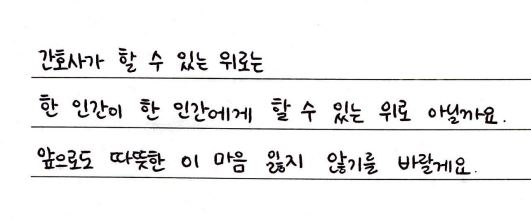 간호사가 할 수 있는 위로는
한 인간이 한 인간에게 할 수 있는 위로 아닐까요.
앞으로도 따뜻한 이 마음 잃지 않기를 바랄게요.